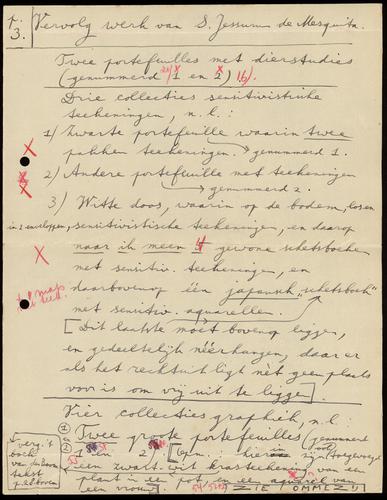 p. 3.
Vervolg werk van S. Jessurun de Mesquita.
Twee portefeuilles met dierstudies
(genummerd 1 en 2) 1b).
Drie collecties sensitivistische
teekeningen, n.l.:
1) Zwarte portefeuille waarin twee
pakken teekeningen. → genummerd 1.
2) Andere portefeuille met teekeningen
→ genummerd 2.
3) Witte doos, waarin op de bodem, losse
in 2 enveloppen, sensitivistische teekeningen, en daarop
naar ik meen 4 gewone schetsboeken
met sensitiv. teekeningen, en
daarbovenop één japansch "schetsboek"
met sensitiv. aquarellen.
[Dit laatste moet bovenop liggen,
en gedeeltelijk néérhangen, daar er
als het rechtuit ligt nèt geen plaats
voor is om vrij uit te liggen.]
Vier collecties graphiek, n.l.:
Twee groote portefeuilles (genummerd
1 2) [Bijn.: hier zijn toegevoegd
een zwart-wit krasteekening van een
plant in een pot, en een aquarel van
een vrouw.] ZIE OMMEZIJ